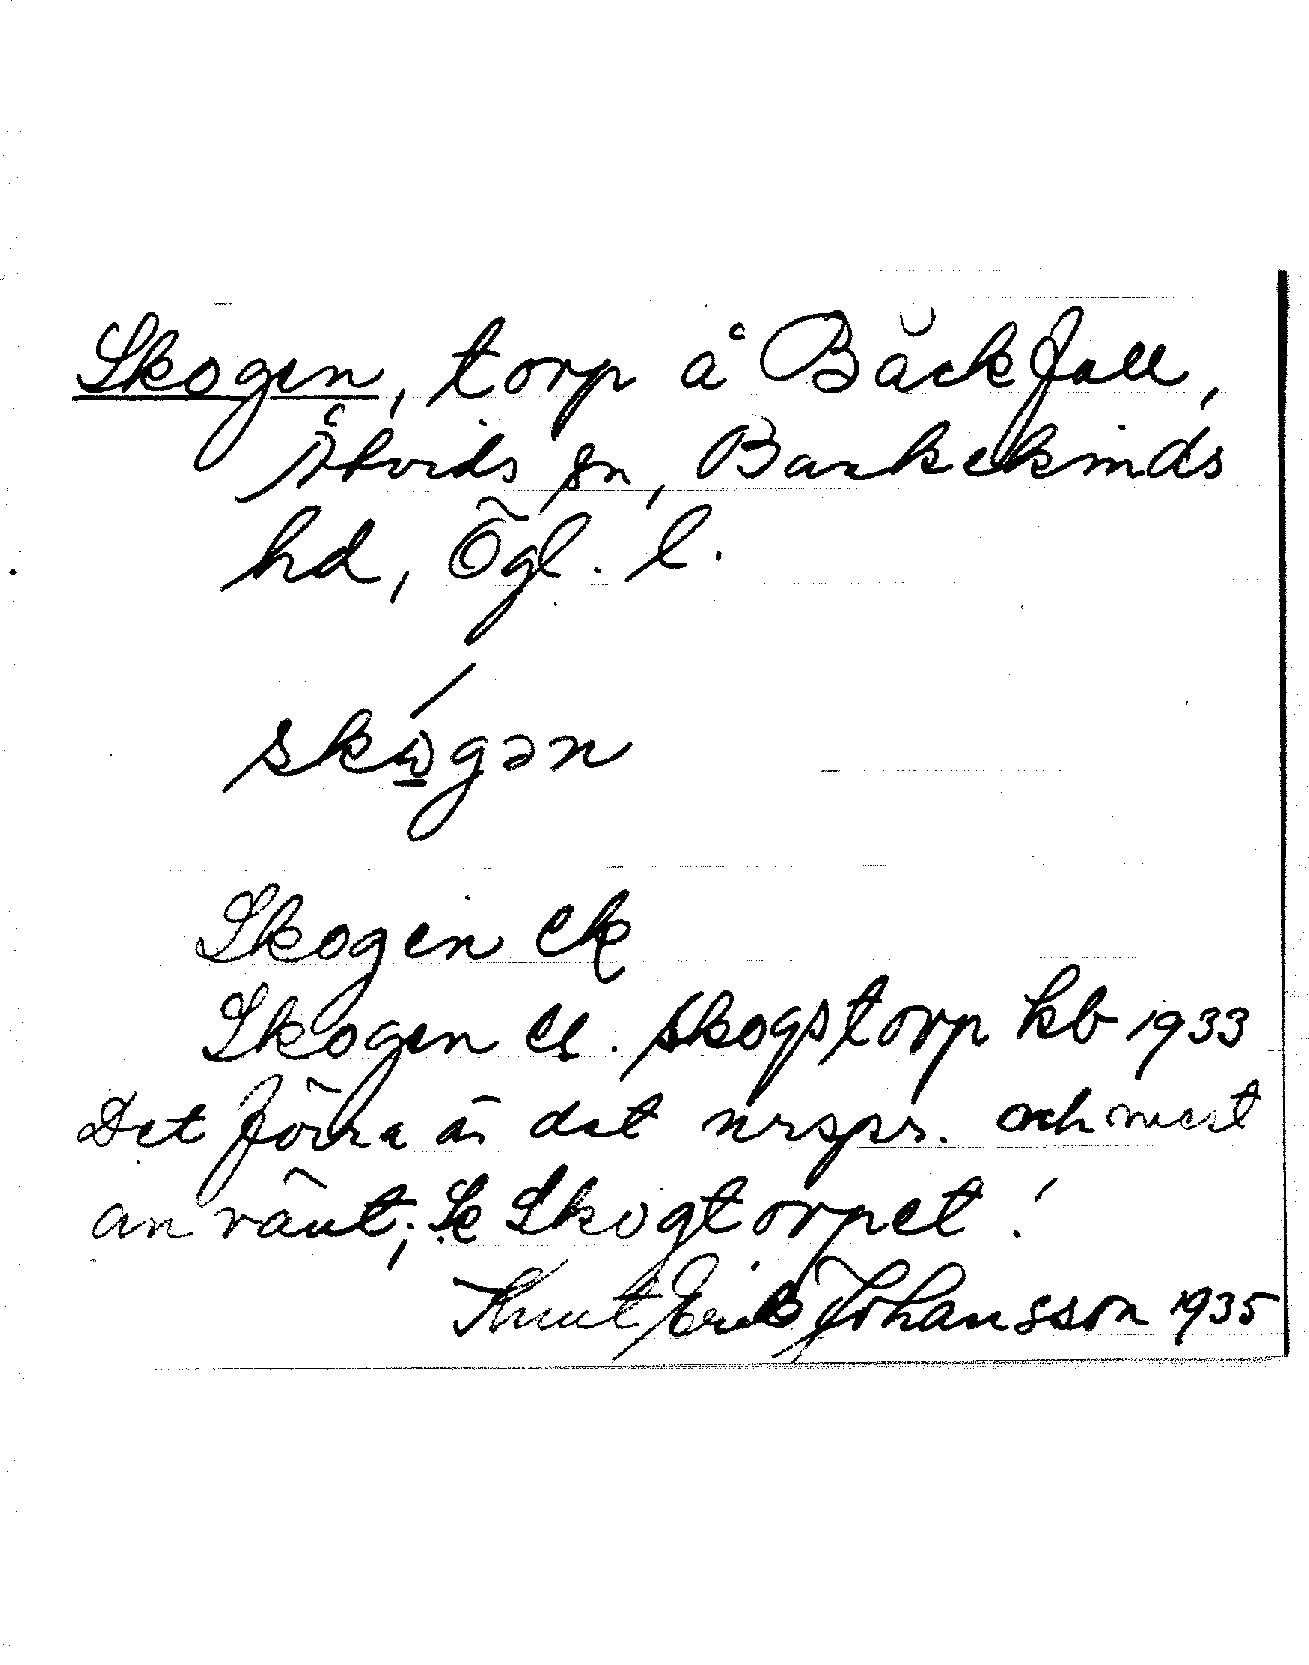 Skogen, torp å Bäckfall,
Åtvids sn, Bankekinds
hd, Ögl. l.
skωgən
Skogen ek
Skogen el. Skogstorp kb 1933
Det förra är det urspr. och mest
använt; Se Skogtorpet!
Knut Erik Johansson 1935